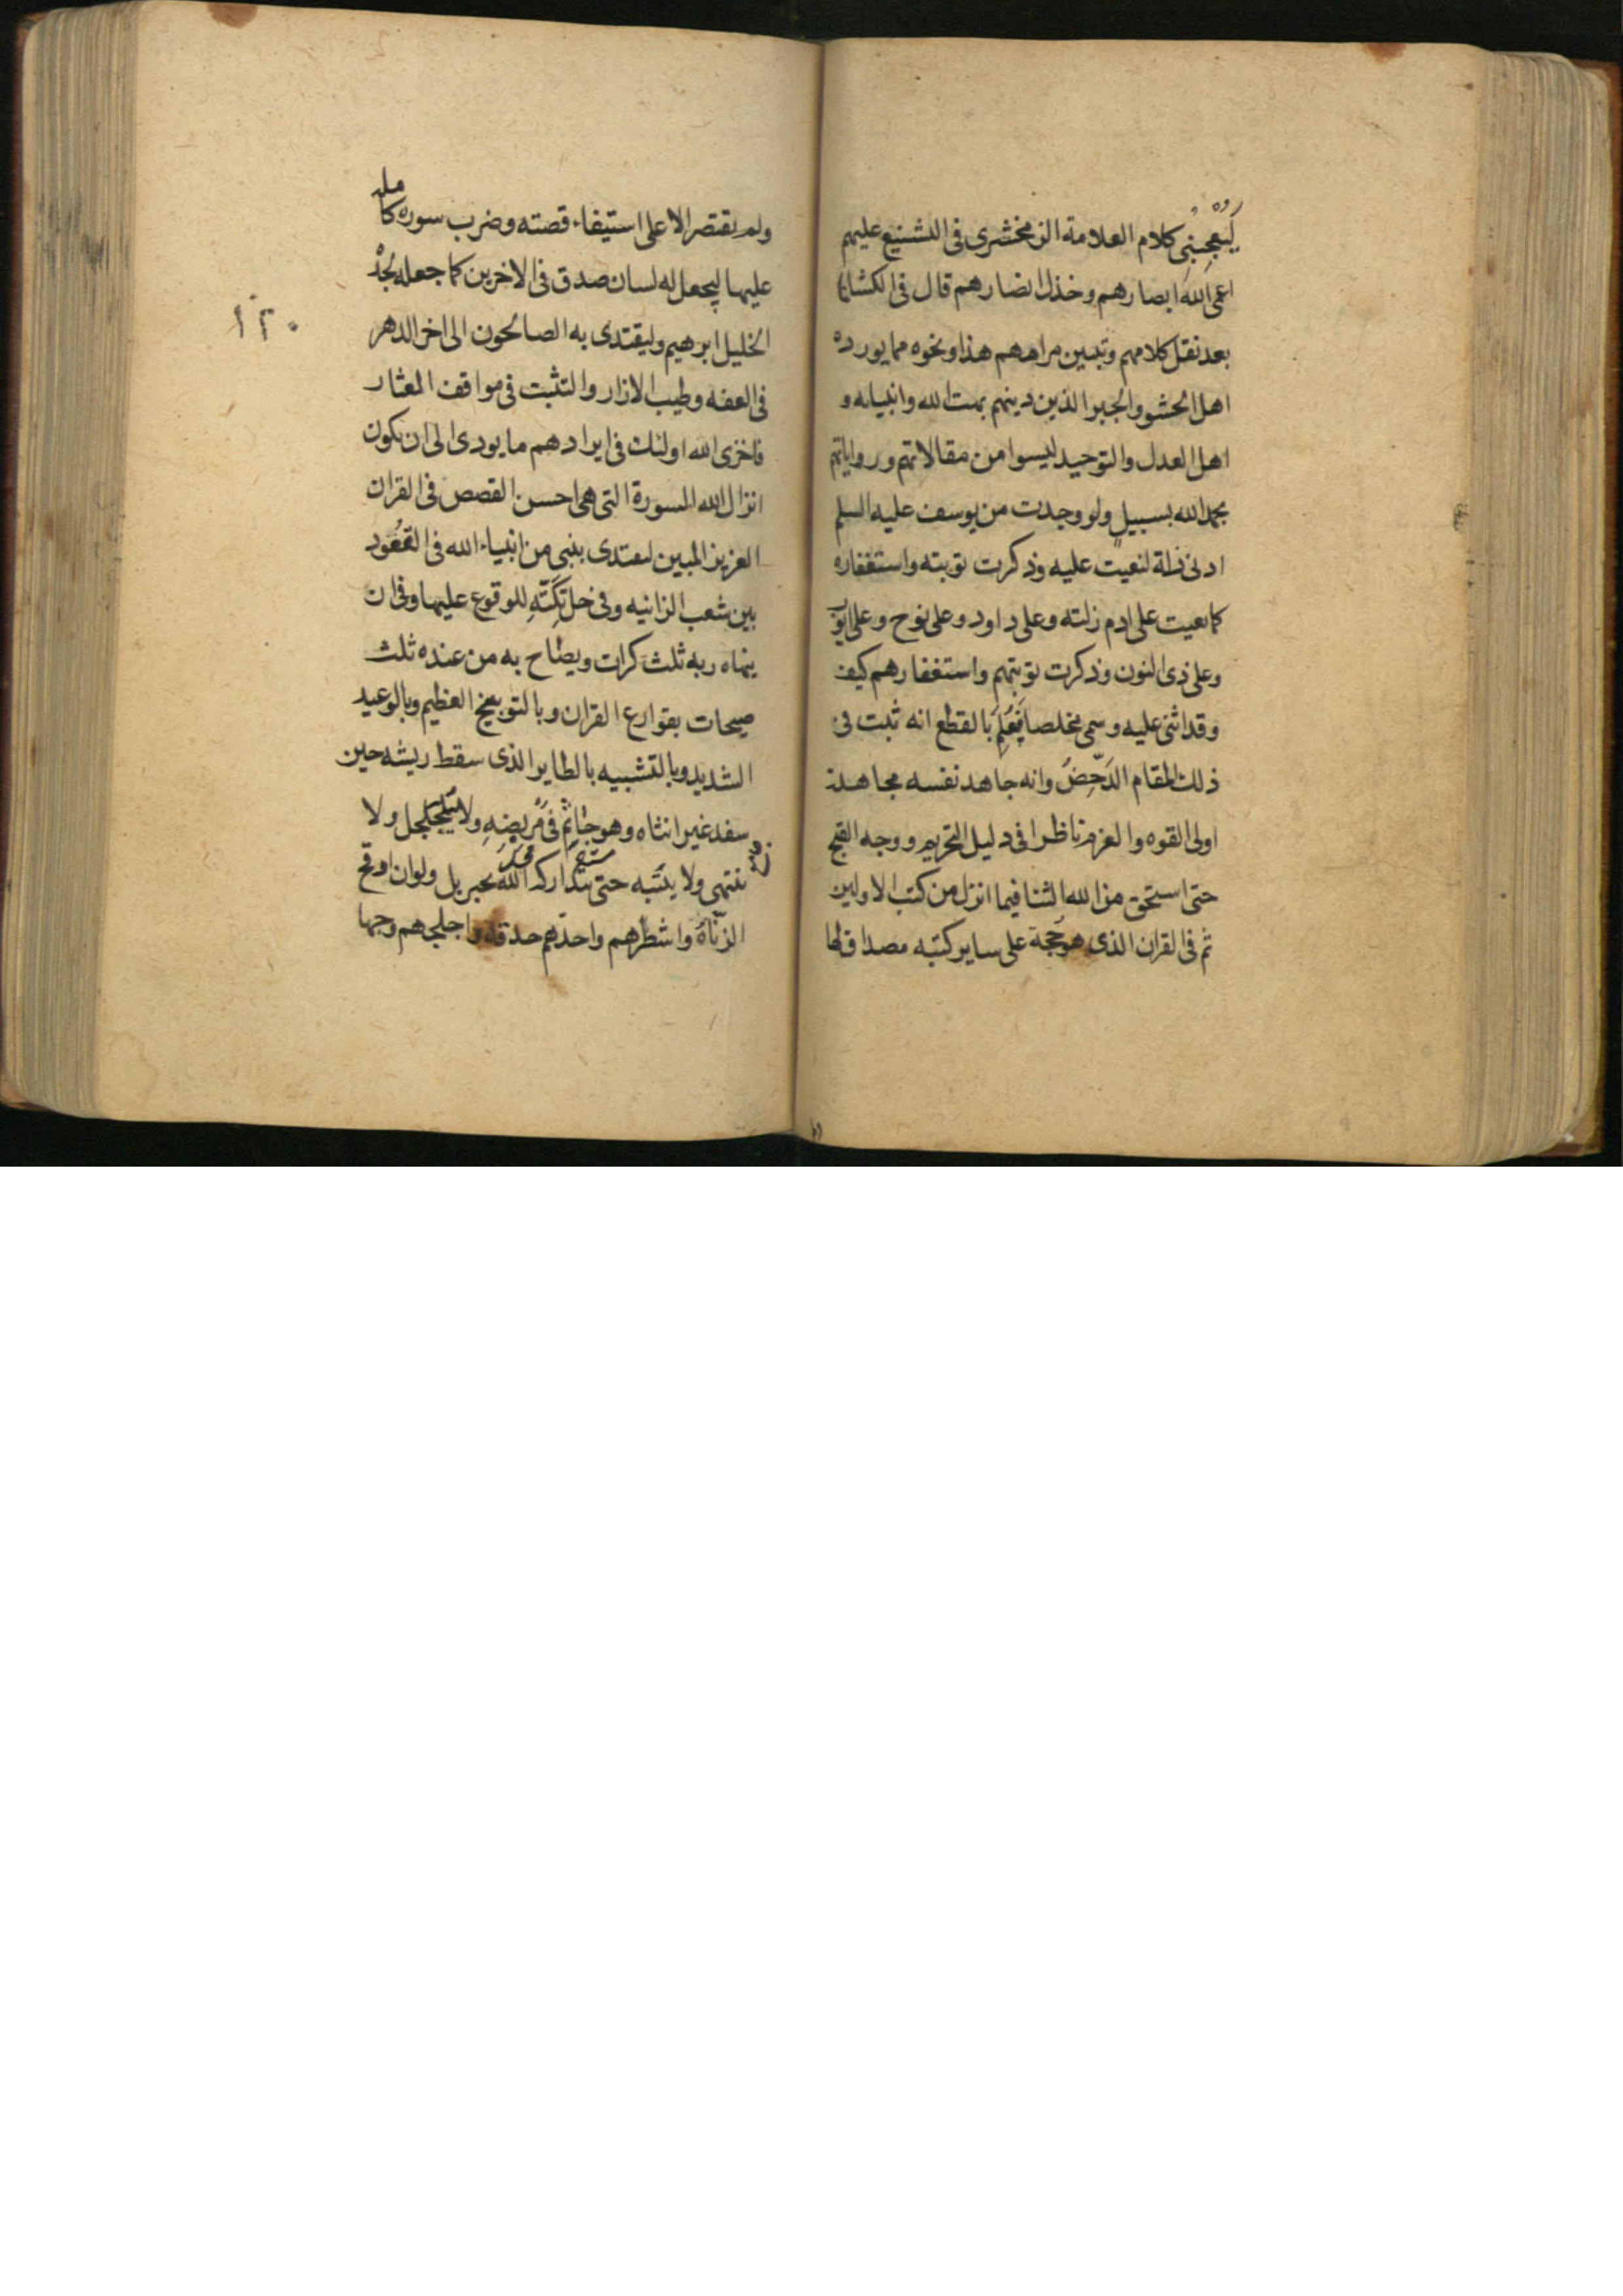 يُعْجِبُنِي كلام العلامة الزمخشرى فى التشنيع عليهم
اعمى الله ابصارهم وخذل انصارهم قال فى الكشاف
بعد نقل كلامهم وتبيين مرامهم هذا ونحوه مما يورده
اهل الحشو والجبر الذين دينهم بهت الله وانبيايه و
اهل العدل والتوحيد ليسوا من مقالاتهم ورواياتهم
بحمد الله بسبيل ولو وجدت من يوسف عليه السلم
ادنى زلة لنعيت عليه وذكرت توبته واستغفاره
كما نعيت على ادم زلته وعلى داود وعلى نوح وعلى ايوب
وعلى ذى النون وذكرت توبتهم واستغفارهم كيف
وقد اثنى عليه وسمى مخلصا فَعُلِمَ بالقطع انه ثبت فى
ذلك المقام الدَحِضَ وانه جاهد نفسه مجاهدة
اولى القوه والعزم ناظرا فى دليل التحريم ووجه القبح
حتى استحق من الله الثنا فيما انزل من كتب الاولين
ثم فى القران الذى هو حُجة على ساير كتبه مصداق لها
ولم يقتصر الا على استيفاء قصته وضرب سوره كامله
عليها ليجعل له لسان صدق فى الاخرين كما جعله لجدْ
الخليل ابرهيم وليقتدى به الصالحون الى اخر الدهر
فى العفه وطيب الازار والتثبت فى مواقف العثار
فاخزى الله اولئك فى ايرادهم ما يودى الى ان يكون
انزال الله السورة التى هى احسن القصص فى القران
العزيز المبين ليقتدى بنبى من انبياء الله فى القعُود
بين شعب الزانيه وفى حل تِكَّتِهِ للوقوع عليها وفى ان
ينهاه ربه ثلث كرات ويصاح به من عنده ثلث
صيحات بقوارع القران وبالتوبيخ العظيم وبالوعيد
الشديد وبالتشبيه بالطاير الذى سقط ريشه حين
سفد غير انثاه وهو جاثم فى مَربضِهِ ولا يَتَحَلْحل ولا
ينتهى ولا ينتبه حتى يتداركه اللّهُ بجبريل ولو ان اوقح
الزناة واشطرهم واحدّهم حدقة واجلحهم وجها
١٢٠